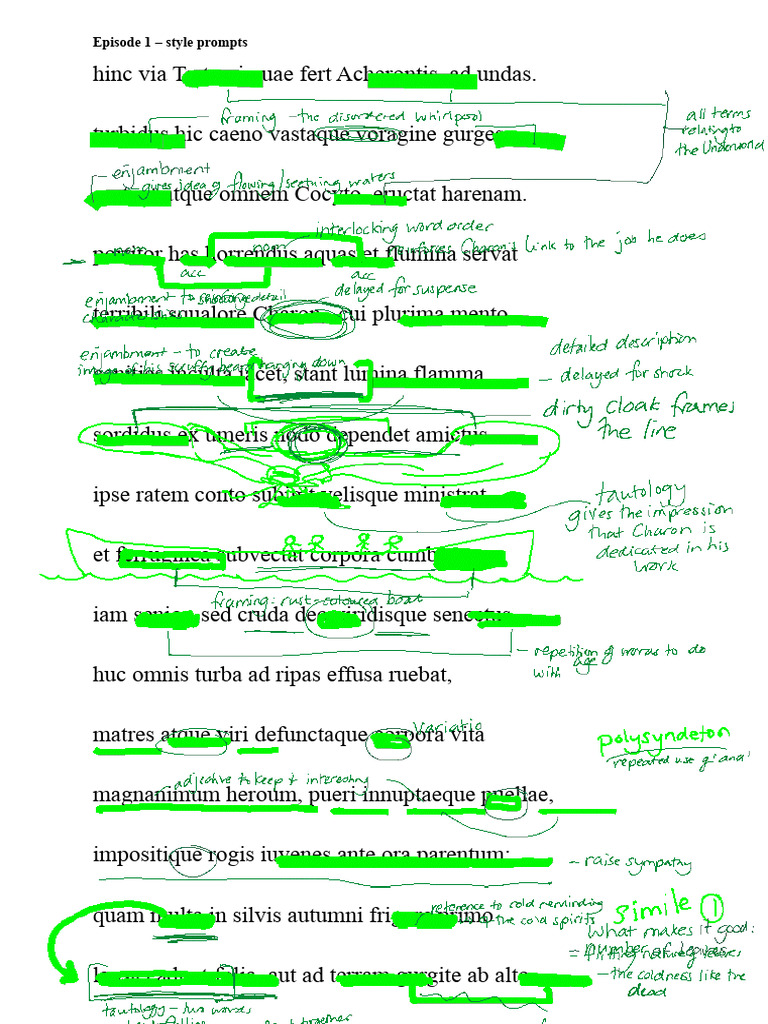 Episode 1 – style prompts
hinc via quae fert Acherontis ad undas.
framing - the disordered whirlpool
all terms
relating to
the Underworld
turbidus hic caeno vastaque voragine gurges
enjambment
gives idea of flowing/seething waters
atque omnem Cocyto eructat harenam.
interlocking word order
Charon's link to the job he does
has horrendus aquas et flumina servat
acc
acc
delayed for suspense
enjambment to detail
terribili squalore Charon, cui plurima mento
enjambment - to create
image of his scruffy beard hanging down
detailed description
inculta iacet, stant lumina flamma,
- delayed for shock
dirty cloak frames
the line
sordidus ex umeris nodo dependet amictus.
ipse ratem conto subigit velisque ministrat
tautology
gives the impression
that Charon is
dedicated in his
work
et ferruginea subvectat corpora cumba
framing: rust-coloured boat
iam senior, sed cruda deo viridisque senectus.
- repetition of words to do
with age
huc omnis turba ad ripas effusa ruebat,
Variatio
matres atque viri defunctaque corpora vita
polysyndeton
repeated use of 'and'
adjective to keep it interesting
magnanimum heroum, pueri innuptaeque puellae,
impositique rogis iuvenes ante ora parentum:
- raise sympathy
reference to cold reminding
the cold spirits
simile 1
What makes it good:
quam multa in silvis autumni frigore primo
number of leaves
- the coldness like the
dead
aut ad terram gurgite ab alto
tautology - two words
together